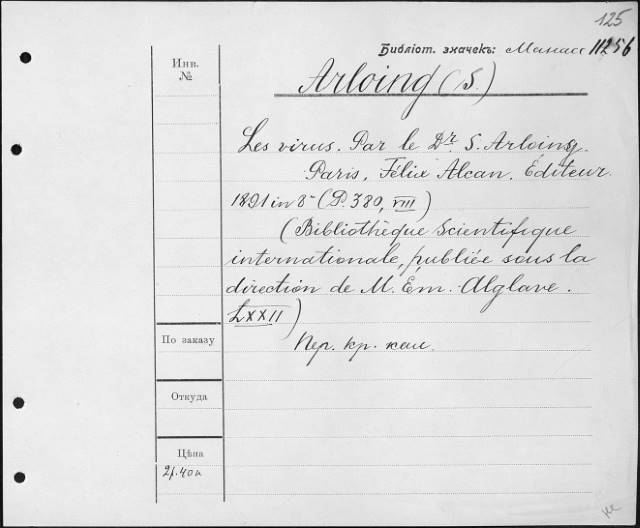 125
Библіот. значекъ: Манасс 11256
Инв.
№
Arloing (S.)
Les virus. Par le Dr. S. Arloing.
Paris, Félix Alcan, Éditeur.
1891 in 8° (P. 380, VIII)
(Bibliothèque Scientifique
internationale, publiée sous la
direction de M. Ém. Alglave.
LXXII)
По заказу
Пер. кр. кал.
Откуда
Цѣна
2р. 40к